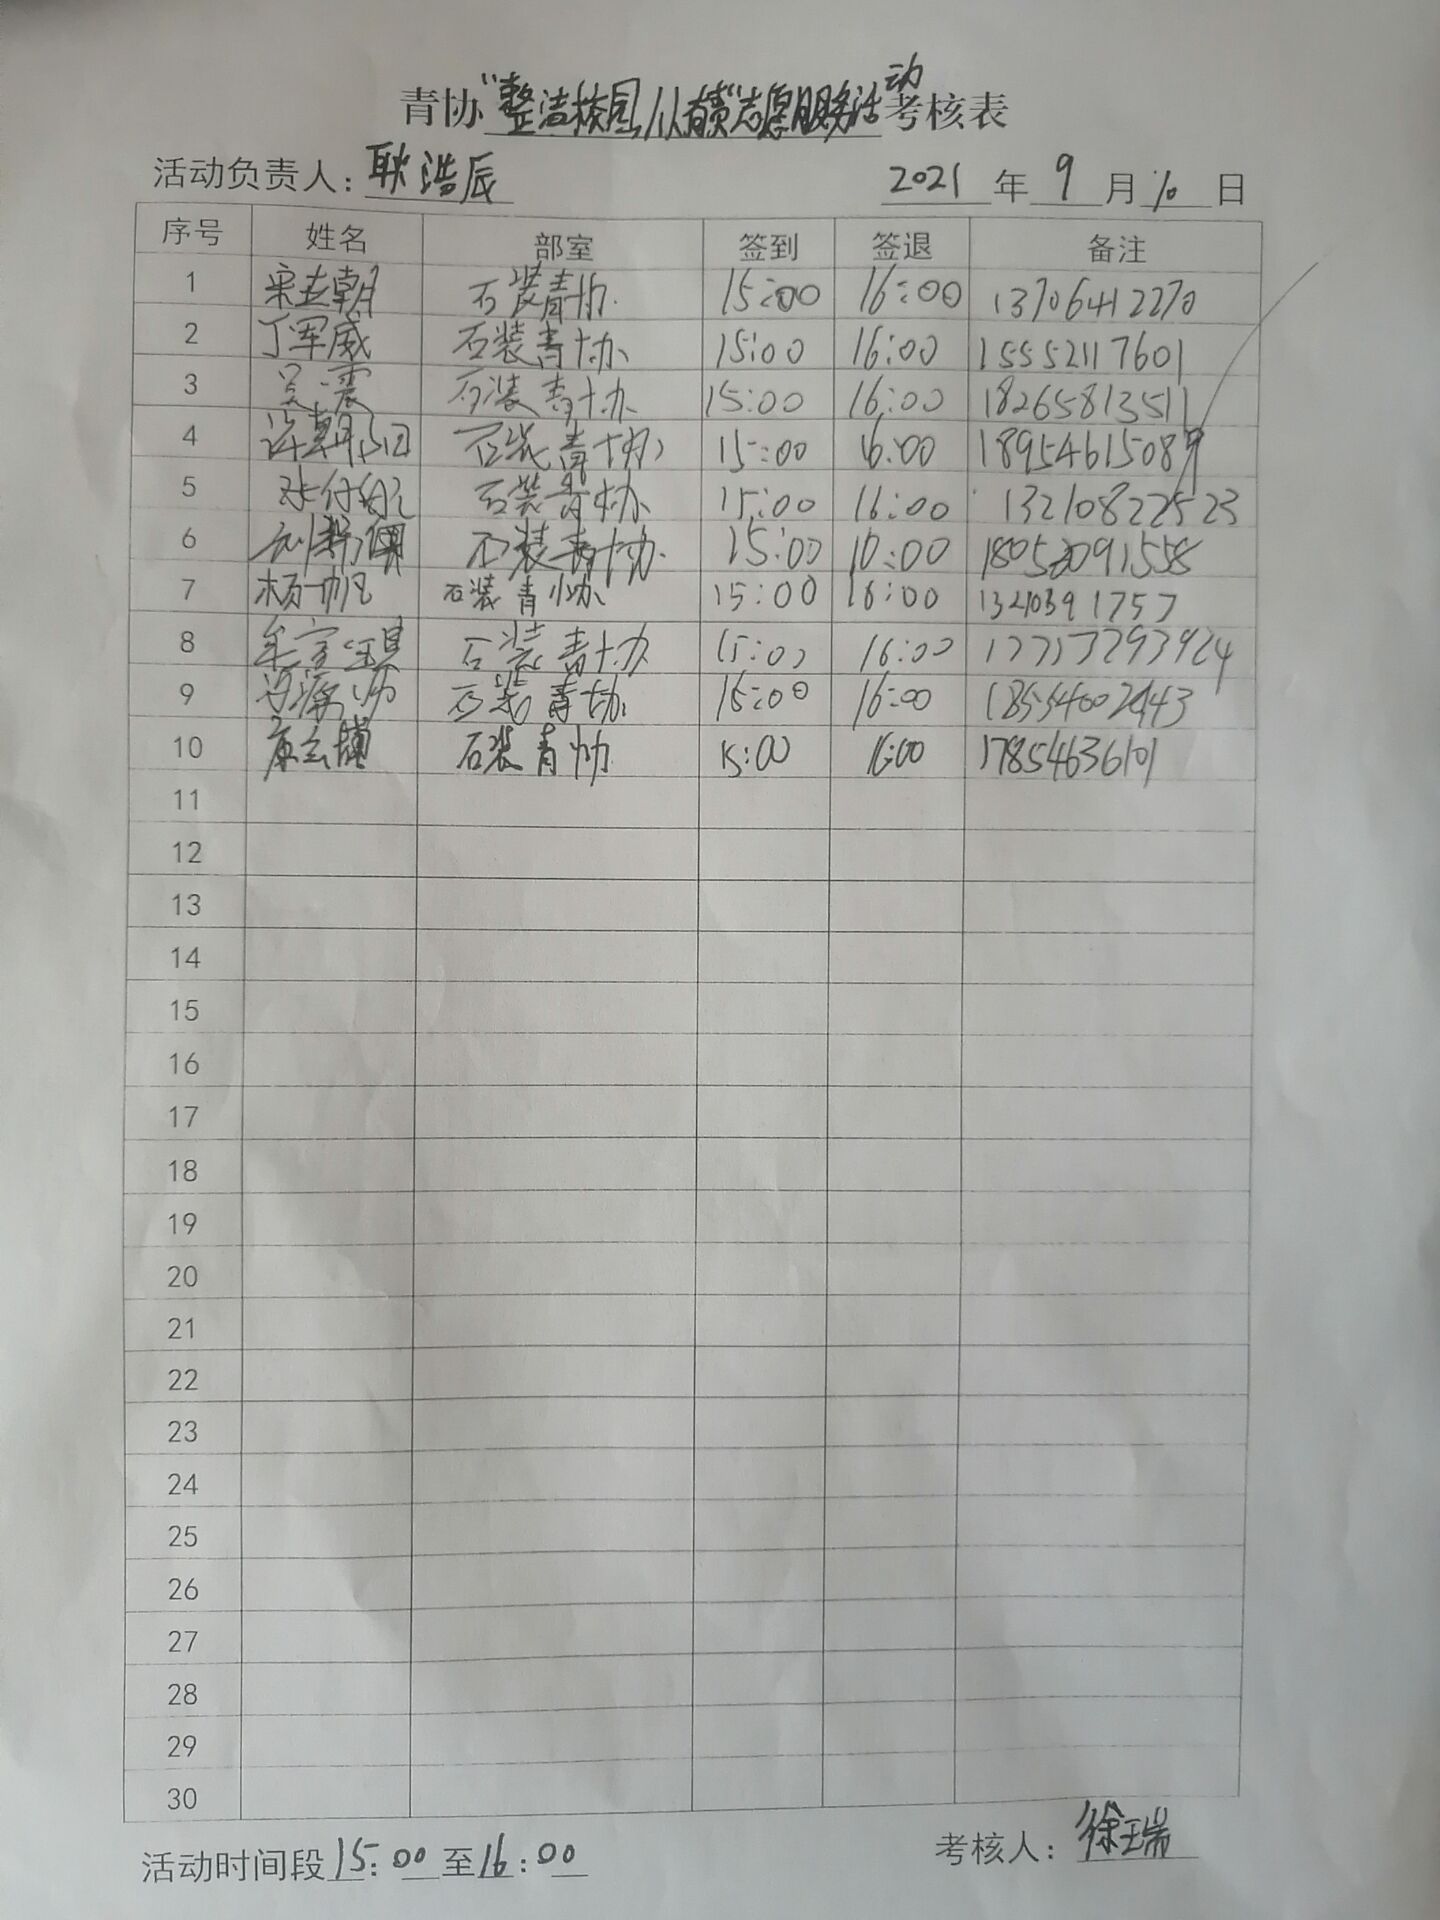 青协"整洁校园,人人有责"志愿服务活动考核表
活动负责人：耿浩辰 2021 年 9 月 10 日
序号 姓名 部室 签到 签退 备注
1 石装青协 15:00 16:00 13706412270
2 丁军威 石装青协 15:00 16:00 15552117601
3 吴震 石装青协 15:00 16:00 18265813511
4 石装青协 15:00 16:00 18954615089
5 石装青协 15:00 16:00 13210822523
6 石装青协 15:00 16:00
7 杨一帆 石装青协 15:00 16:00 13210391757
8 石装青协 15:00 16:00
9 石装青协 15:00 16:00 18554002443
10 石装青协 15:00 16:00 17854636101
11
12
13
14
15
16
17
18
19
20
21
22
23
24
25
26
27
28
29
30
活动时间段 15:00 至 16:00 考核人：徐瑞